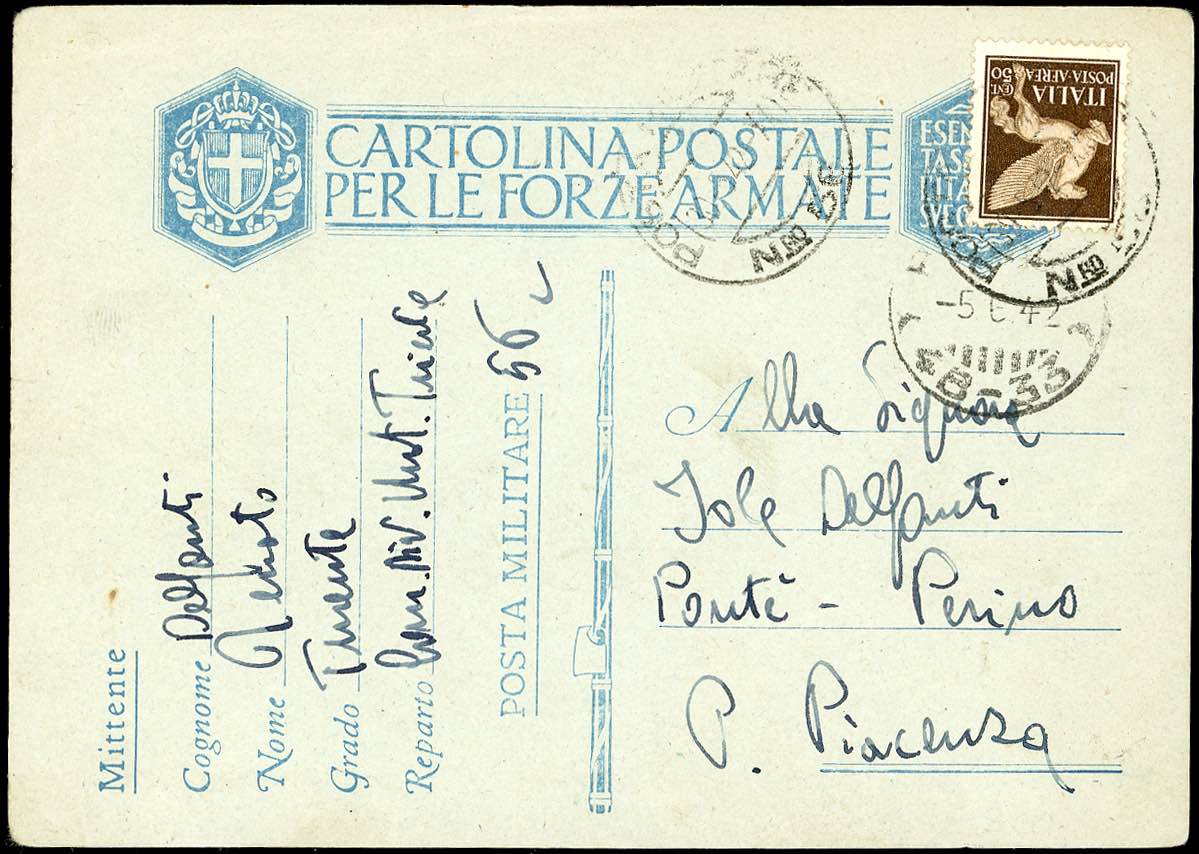 CARTOLINA POSTALE
PER LE FORZE ARMATE
ITALIA
POSTA-AEREA
CENT. 50
ESEN
TASS
-5 6.42
8-33
Mittente
Cognome Delfanti
Nome Renato
Grado Tenente
Reparto Com. Div.
POSTA MILITARE 56
Alla Signora
Iole Delfanti
Ponte - Perino
P. Piacenza